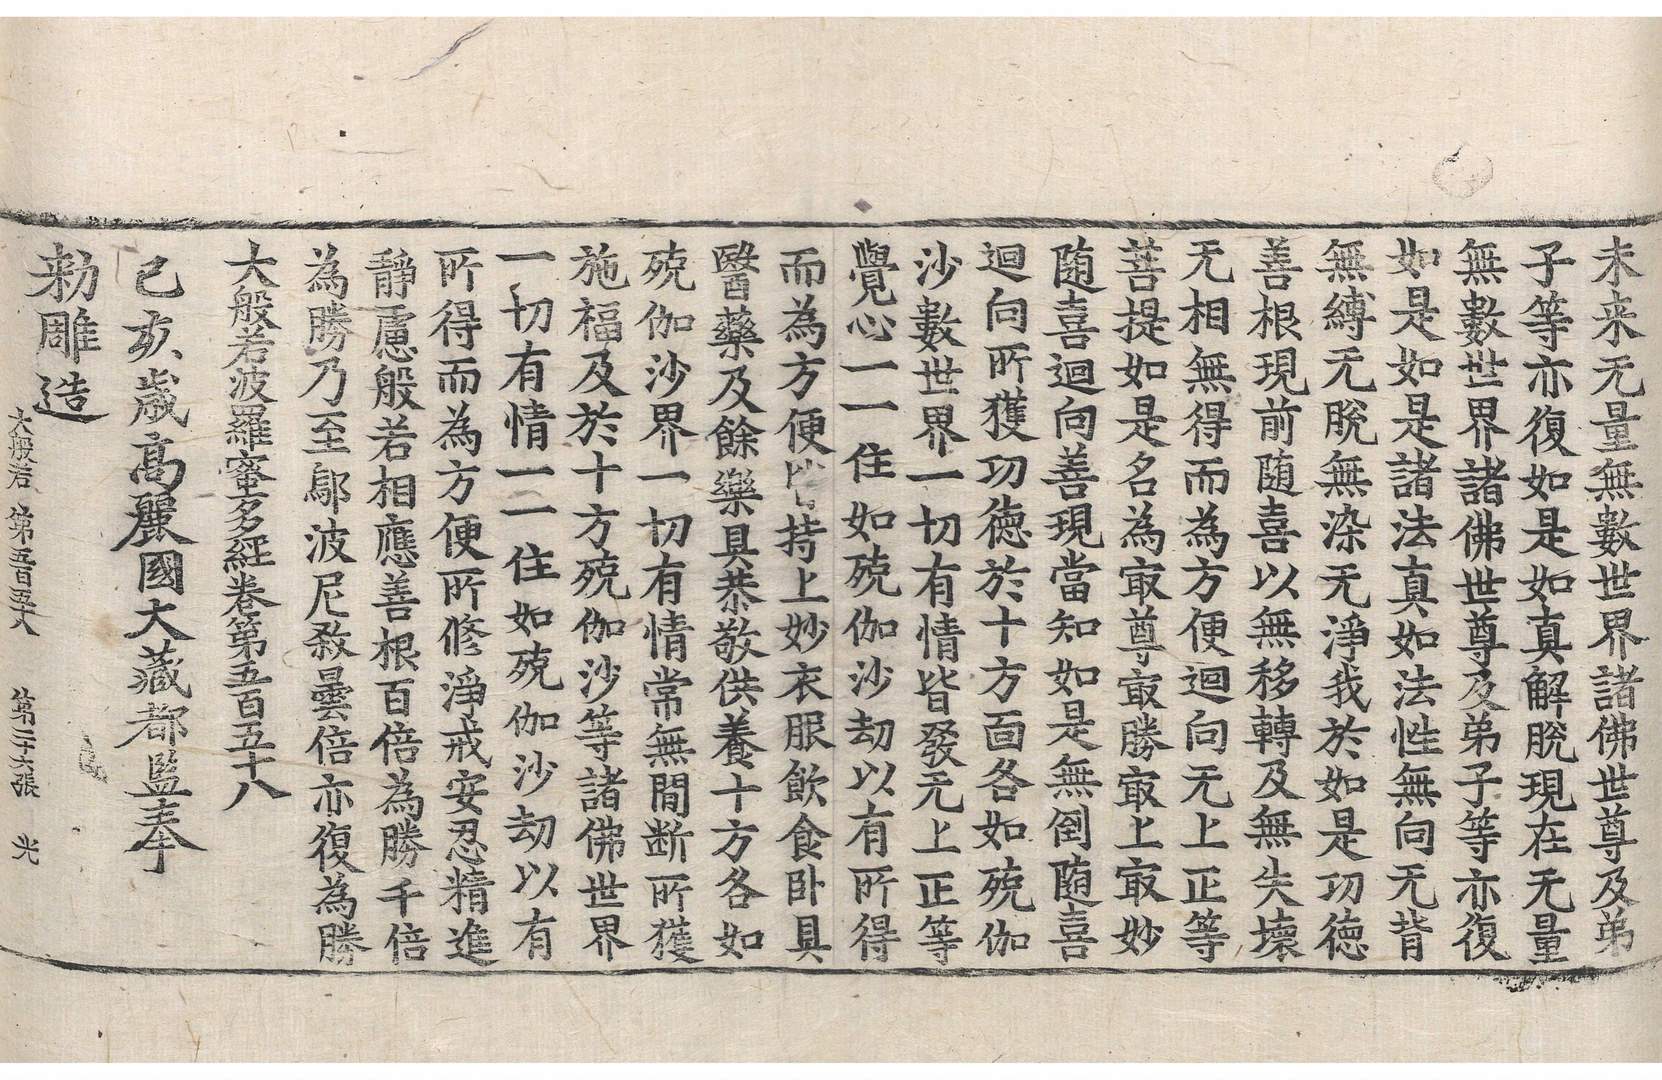 未来无量無數世界諸佛世尊及弟
子等亦復如是如真解脫現在无量
無數世界諸佛世尊及弟子等亦復
如是如是諸法真如法性無向无背
無縛无脫無染无淨我於如是功德
善根現前随喜以無移轉及無失壞
无相無得而為方便迴向无上正等
菩提如是名為㝡尊㝡勝㝡上㝡妙
随喜迴向善現當知如是無倒随喜
迴向所獲功德於十方面各如殑伽
沙數世界一切有情皆發无上正等
覺心一一住如殑伽沙劫以有所得
而為方便持上妙衣服飲食卧具
醫藥及餘樂具恭敬供養十方各如
殑伽沙界一切有情常無間断所獲
施福及於十方殑伽沙等諸佛世界
一切有情一一住如殑伽沙劫以有
所得而為方便所修淨戒安忍精進
靜慮般若相應善根百倍為勝千倍
為勝乃至鄔波尼殺曇倍亦復為勝
大般若波羅蜜多經卷第五百五十八
己亥歲高麗國大藏都監奉
勅雕造
大般若 第五百五十八 第二十六張 光